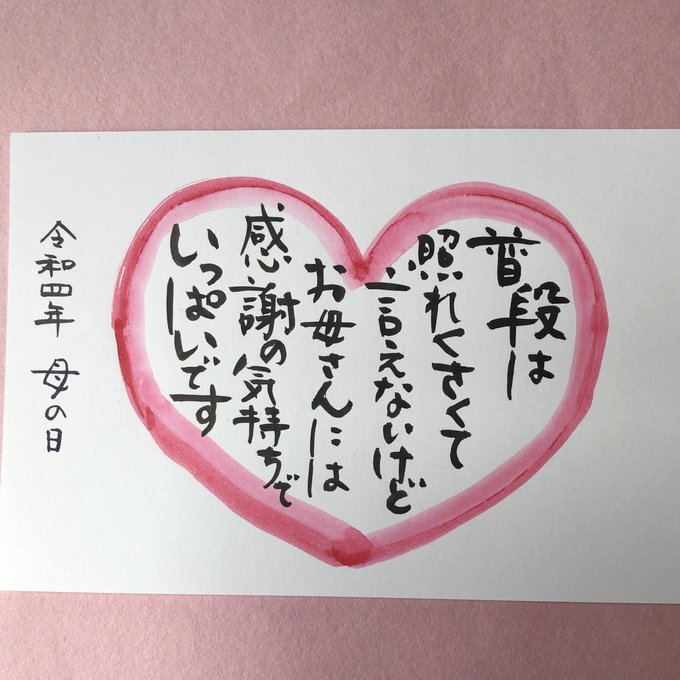 普段は
照れくさくて
言えないけど
お母さんには
感謝の気持ちで
いっぱいです
令和四年 母の日